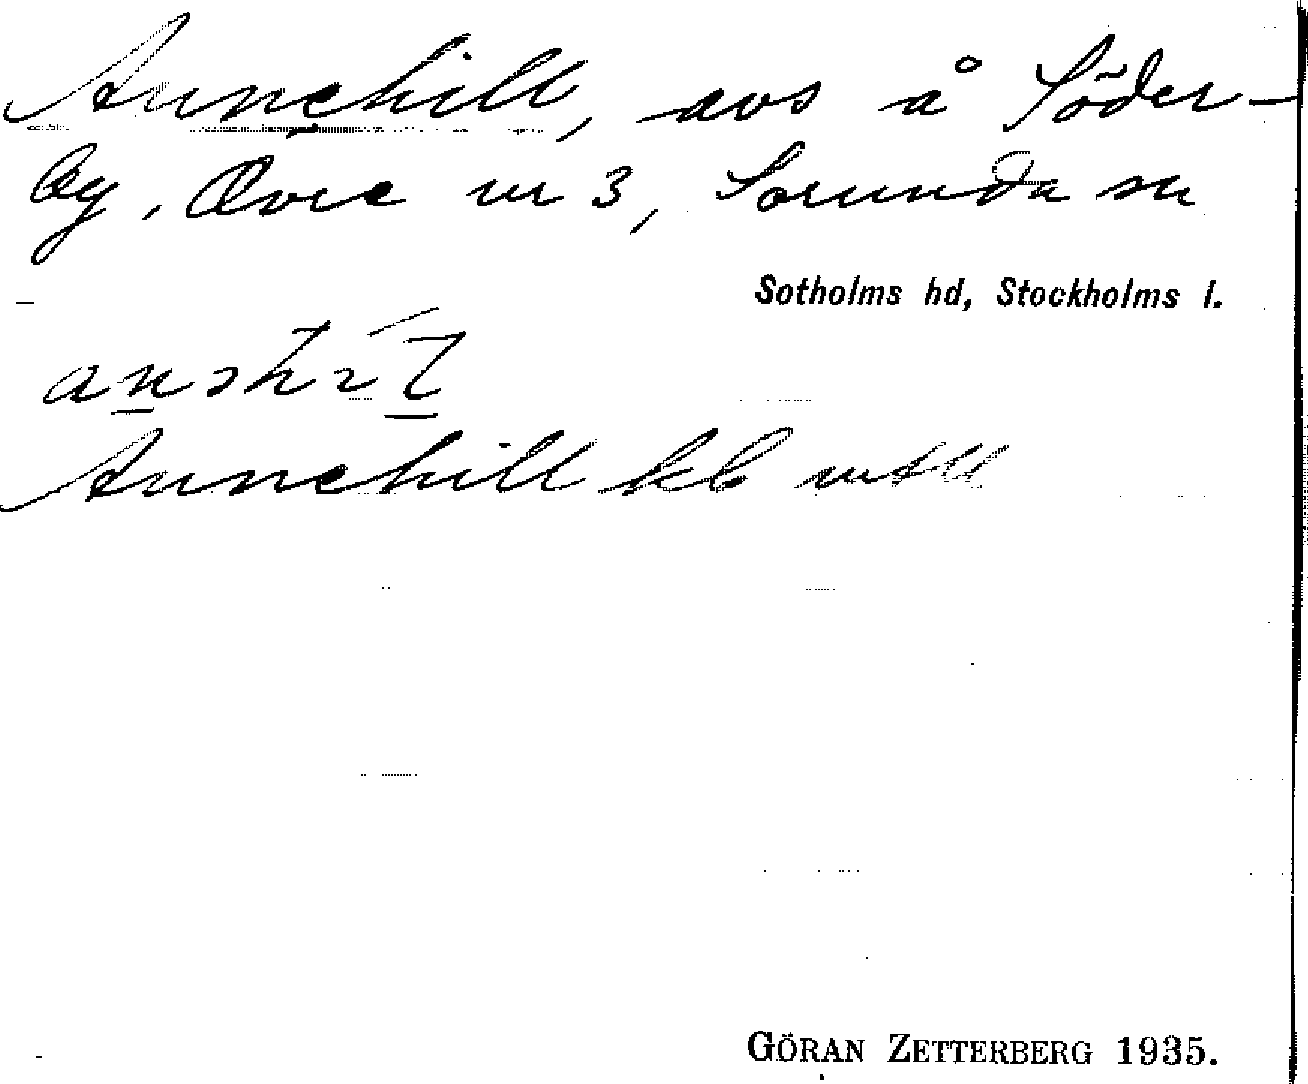 Annehill, avs å Söder-
by, Övre nr 3, Sorunda sn
Sotholms hd, Stockholms l.
Annehill kb mtll
GÖRAN ZETTERBERG 1935.